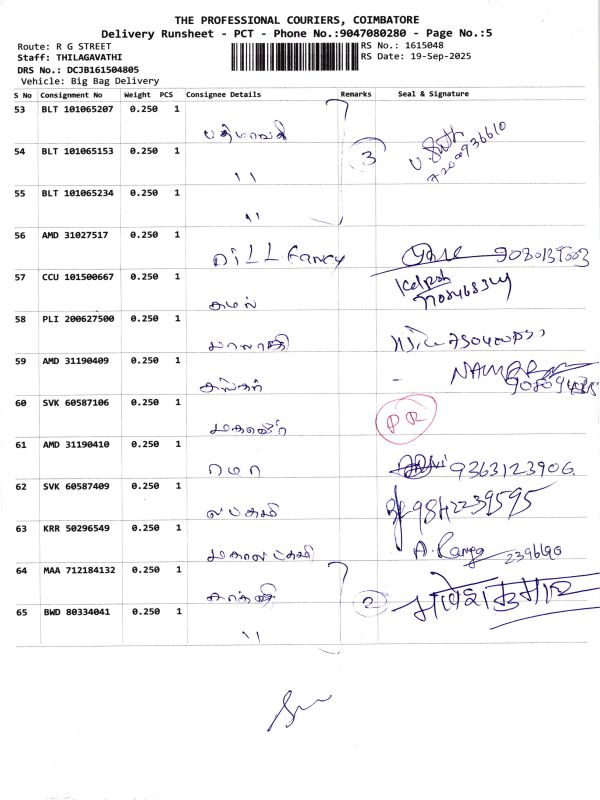 THE PROFESSIONAL COURIERS, COIMBATORE
Delivery Runsheet - PCT - Phone No.:9047080280 - Page No.:5
Route: R G STREET
RS No.: 1615048
Staff: THILAGAVATHI
RS Date: 19-Sep-2025
DRS No.: DCJB161504805
Vehicle: Big Bag Delivery
S No Consignment No Weight PCS Consignee Details Remarks Seal & Signature
53 BLT 101065207 0.250 1 பத்மாவதி
54 BLT 101065153 0.250 1 " 3 7200936610
55 BLT 101065234 0.250 1 "
56 AMD 31027517 0.250 1 DILL Fancy
57 CCU 101500667 0.250 1 கமல்
58 PLI 200627500 0.250 1
59 AMD 31190409 0.250 1
60 SVK 60587106 0.250 1 PR
61 AMD 31190410 0.250 1 ரமா 9363123906
62 SVK 60587409 0.250 1 லட்சுமி 9842239595
63 KRR 50296549 0.250 1 மகாலட்சுமி A. Ranga 2396690
64 MAA 712184132 0.250 1
65 BWD 80334041 0.250 1 " 2